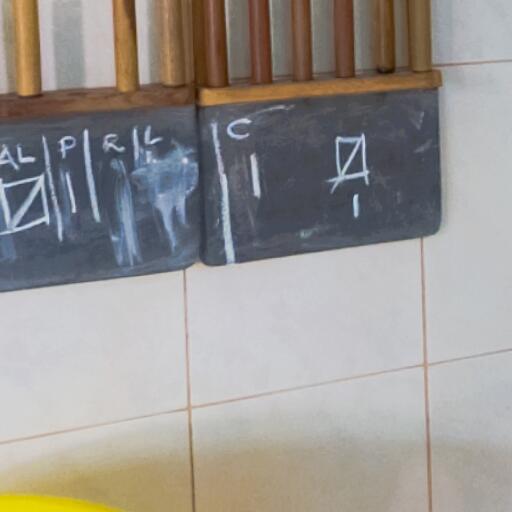 AL P R L
C